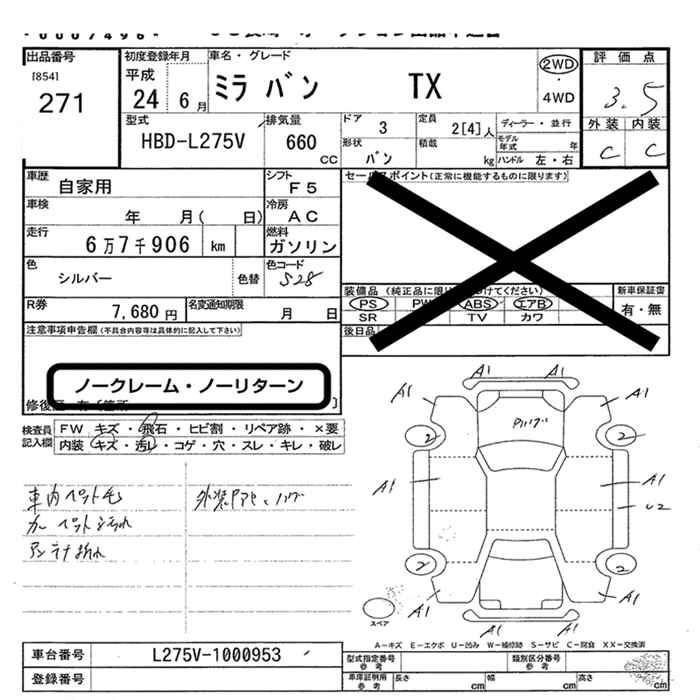 出品番号
[854]
271
初度登録年月
平成
24 6月
車名・グレード
ミラ バン TX
2WD
4WD
評価点
3.5
外装 内装
C C
型式
HBD-L275V
排気量
660 cc
ドア
3
定員
2[4]人
ディーラー・並行
形状
バン
積載
kg
モデル年式 年
ハンドル 左・右
車歴
自家用
シフト
F5
セールスポイント(正常に機能するものに限ります)
車検
年 月( 日)
冷房
AC
走行
6万7千906 km
燃料
ガソリン
色
シルバー
色替
色コード
S28
装備品
新車保証書
有・無
PS PW ABS エアB
SR TV カワ
R券
7,680円
名変通知期限
月 日
後日品
注意事項申告欄(不具合内容等は具体的に記入して下さい)
ノークレーム・ノーリターン
検査員記入欄
FW キズ・飛石・ヒビ割・リペア跡・×要
内装 キズ・汚レ・コゲ・穴・スレ・キレ・破レ
車内ペット毛
カーペット汚れ
アンテナ折れ
A1 A1 A1
2 2
A1 A1
U2
2 2
A1 A1
A1 A1
スペア
A-キズ E-エクボ U-凹み W-補修跡 S-サビ C-腐食 XX-交換済
車台番号
L275V-1000953
型式指定番号
参考
類別区分番号
参考
登録番号
車庫証明用
参考
長さ cm
幅 cm
高さ cm